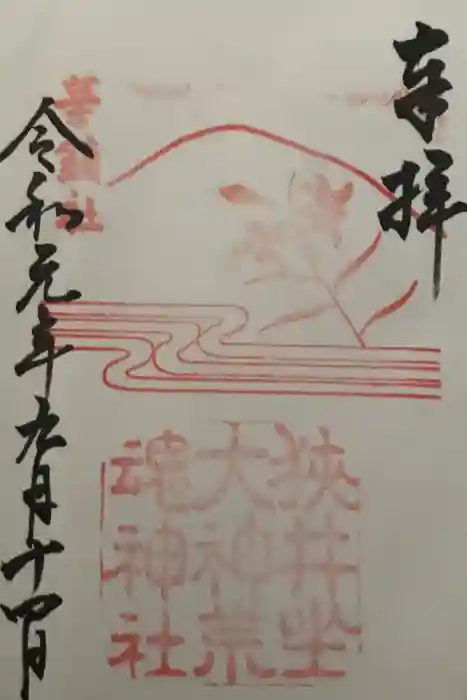 奉拝
華鎮社
狭井坐
大神荒
魂神社
令和元年九月十四日